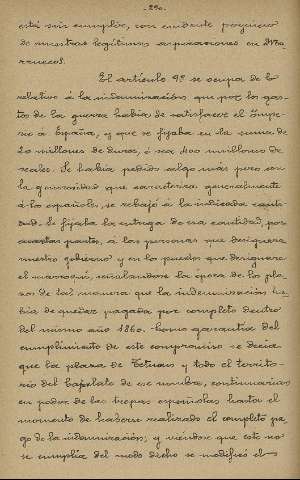 -290-
está sin cumplir, con evidente perjuicio
de nuestras legítimas aspiraciones en Ma-
rruecos.
El artículo 9º se ocupa de lo
relativo á la indemnización que por los gas-
tos de la guerra había de satisfacer el Impe-
rio á España, y que se fijaba en la suma de
20 millones de duros, ó sea 400 millones de
reales. Se había pedido algo más pero con
la generosidad que caracteriza generalmente
á los españoles, se rebajó á la indicada canti-
dad. Se fijaba la entrega de esa cantidad, por
cuartas partes, á las personas que designara
nuestro gobierno y en los puertos que designare
el marroquí, señalándose la época de los pla-
zos de tal manera que la indemnización ha-
bía de quedar pagada por completo dentro
del mismo año 1860. Como garantía del
cumplimiento de este compromiso se decía
que la plaza de Tetuan y todo el territo-
rio del bajalato de ese nombre, continuarían
en poder de las tropas españolas hasta el
momento de haberse realizado el completo pa-
go de la indemnización; y viéndose que esto no
se cumplía del modo dicho se modificó el